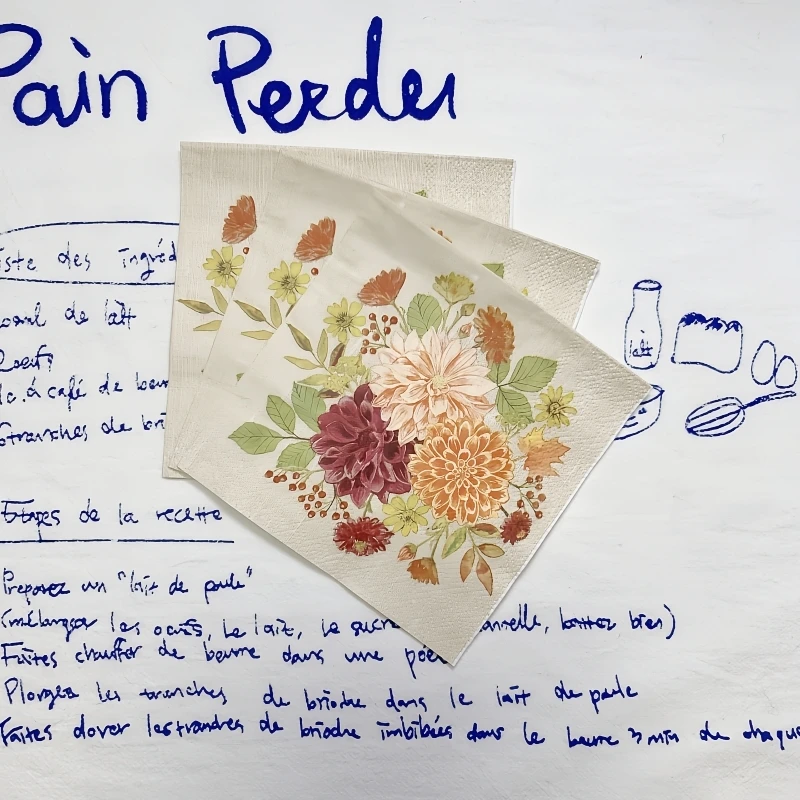 Pain Perdu
iste des ingréd
de lait
lait
oeufs
c. à café de beur
tranches de bri
Etapes de la recette
Preparez un "lait de poule"
(mélanger les oeufs, le lait, le sucr nnelle, battez bien)
Faites chauffer de beurre dans une poê
Plongez les tranches de brioche dans le lait de poule
Faites dorer les tranches de brioche imbibées dans le beurre 3 min de chaque